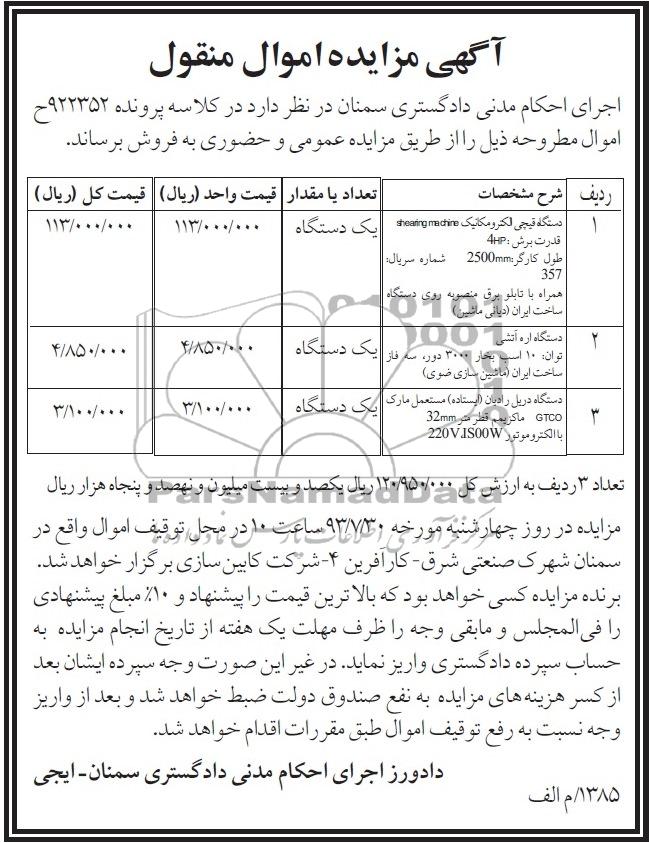 آگهی مزایده اموال منقول
اجرای احکام مدنی دادگستری سمنان در نظر دارد در کلاسه پرونده ۹۲۲۳۵۲ح
اموال مطروحه ذیل را از طریق مزایده عمومی و حضوری به فروش برساند.
ردیف شرح مشخصات تعداد یا مقدار قیمت واحد (ریال) قیمت کل (ریال)
۱ دستگاه قیچی الکترومکانیک shearing machine یک دستگاه ۱۱۳/۰۰۰/۰۰۰ ۱۱۳/۰۰۰/۰۰۰
قدرت برش: 4HP
طول کارگر:2500mm شماره سریال:
357
همراه با تابلو برق منصوبه روی دستگاه
ساخت ایران (دیانی ماشین)
۲ دستگاه اره آتشی یک دستگاه ۴/۸۵۰/۰۰۰ ۴/۸۵۰/۰۰۰
توان: ۱۰ اسب بخار ۳۰۰۰ دور، سه فاز
ساخت ایران (ماشین سازی ضوی)
۳ دستگاه دریل رادیان (ایستاده) مستعمل مارک یک دستگاه ۳/۱۰۰/۰۰۰ ۳/۱۰۰/۰۰۰
GTCO ماکزیمم قطر مته 32mm
با الکتروموتور 220V.IS00W
تعداد ۳ ردیف به ارزش کل ۱۲۰/۹۵۰/۰۰۰ ریال یکصد و بیست میلیون و نهصد و پنجاه هزار ریال
ParsNamadData
مزایده در روز چهارشنبه مورخه ۹۳/۷/۳۰ ساعت ۱۰ در محل توقیف اموال واقع در
سمنان شهرک صنعتی شرق- کارآفرین ۴-شرکت کابین‌سازی برگزار خواهد شد.
برنده مزایده کسی خواهد بود که بالاترین قیمت را پیشنهاد و ۱۰٪ مبلغ پیشنهادی
را فی‌المجلس و مابقی وجه را ظرف مهلت یک هفته از تاریخ انجام مزایده به
حساب سپرده دادگستری واریز نماید. در غیر این صورت وجه سپرده ایشان بعد
از کسر هزینه‌های مزایده به نفع صندوق دولت ضبط خواهد شد و بعد از واریز
وجه نسبت به رفع توقیف اموال طبق مقررات اقدام خواهد شد.
دادورز اجرای احکام مدنی دادگستری سمنان- ایجی
۱۳۸۵/م الف